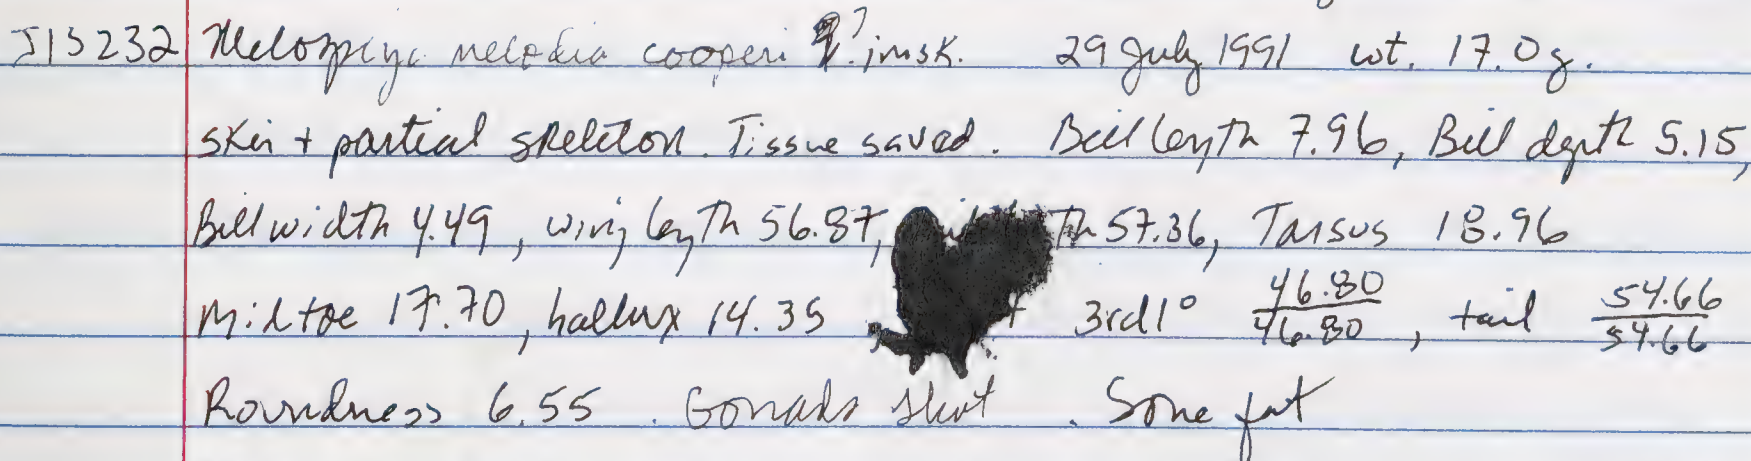 J15232 Melospiza melodia cooperi ♀? imsk. 29 July 1991 wt. 17.0g.
skin + partial skeleton. Tissue saved. Bill length 7.96, Bill depth 5.15,
Bill width 4.49, wing length 56.87, 57.36, Tarsus 18.96
Midtoe 17.70, hallux 14.35, 3rd 1° 46.80/46.80, tail 54.66/54.66
Roundness 6.55. Gonads shot. Some fat